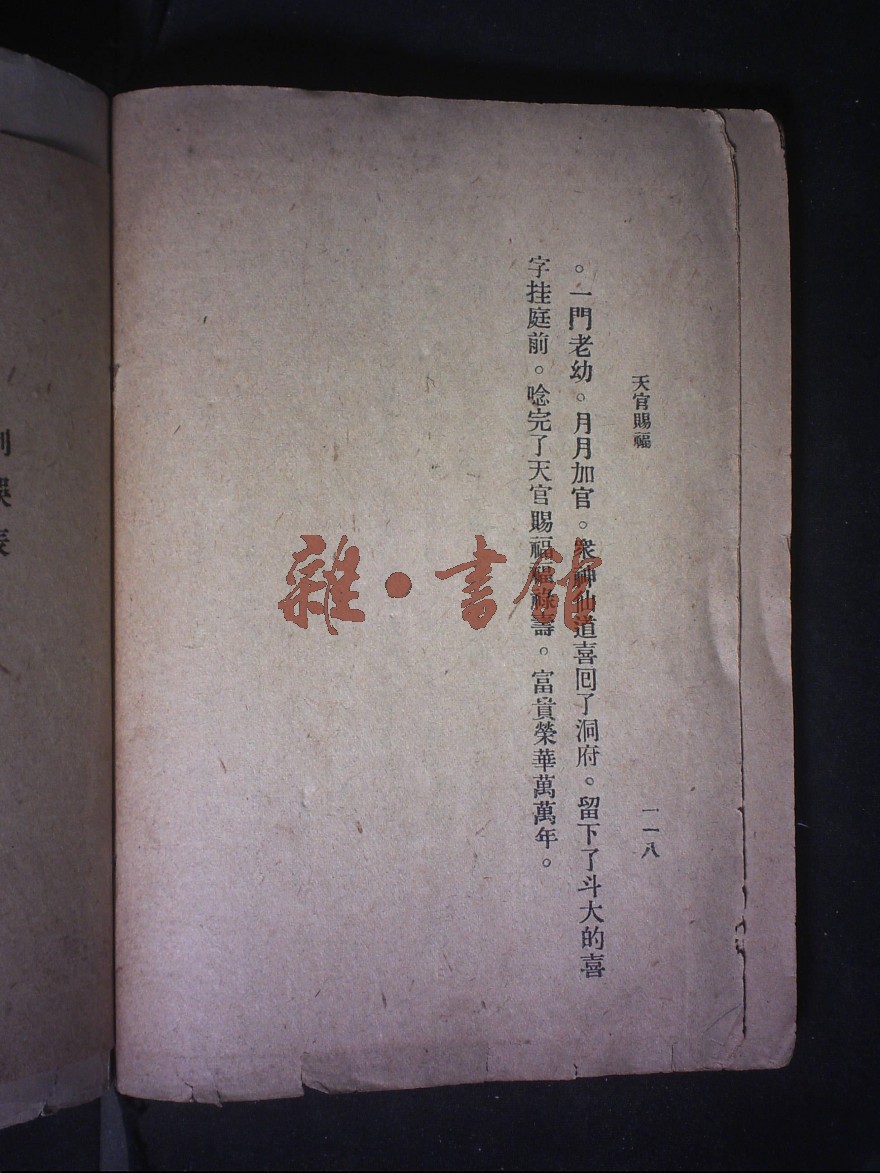 天官賜福
一一八
。一門老幼。月月加官。衆神仙道喜囘了洞府。留下了斗大的喜
字挂庭前。唸完了天官賜福福祿壽。富貴榮華萬萬年。
雜·書館